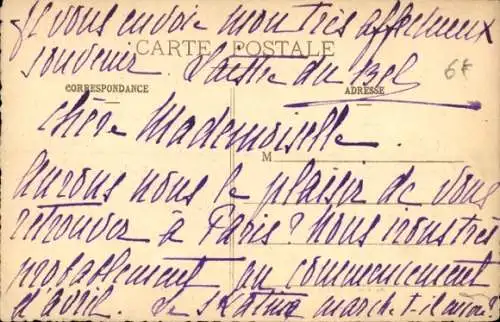 Je vous envoie mon très affectueux
CARTE POSTALE
souvenir.
6F
CORRESPONDANCE
ADRESSE
chère Mademoiselle.
M
Aurons nous le plaisir de vous
retrouver à Paris? Nous irons très
probablement au commencement
d'avril. Le marche-t-il